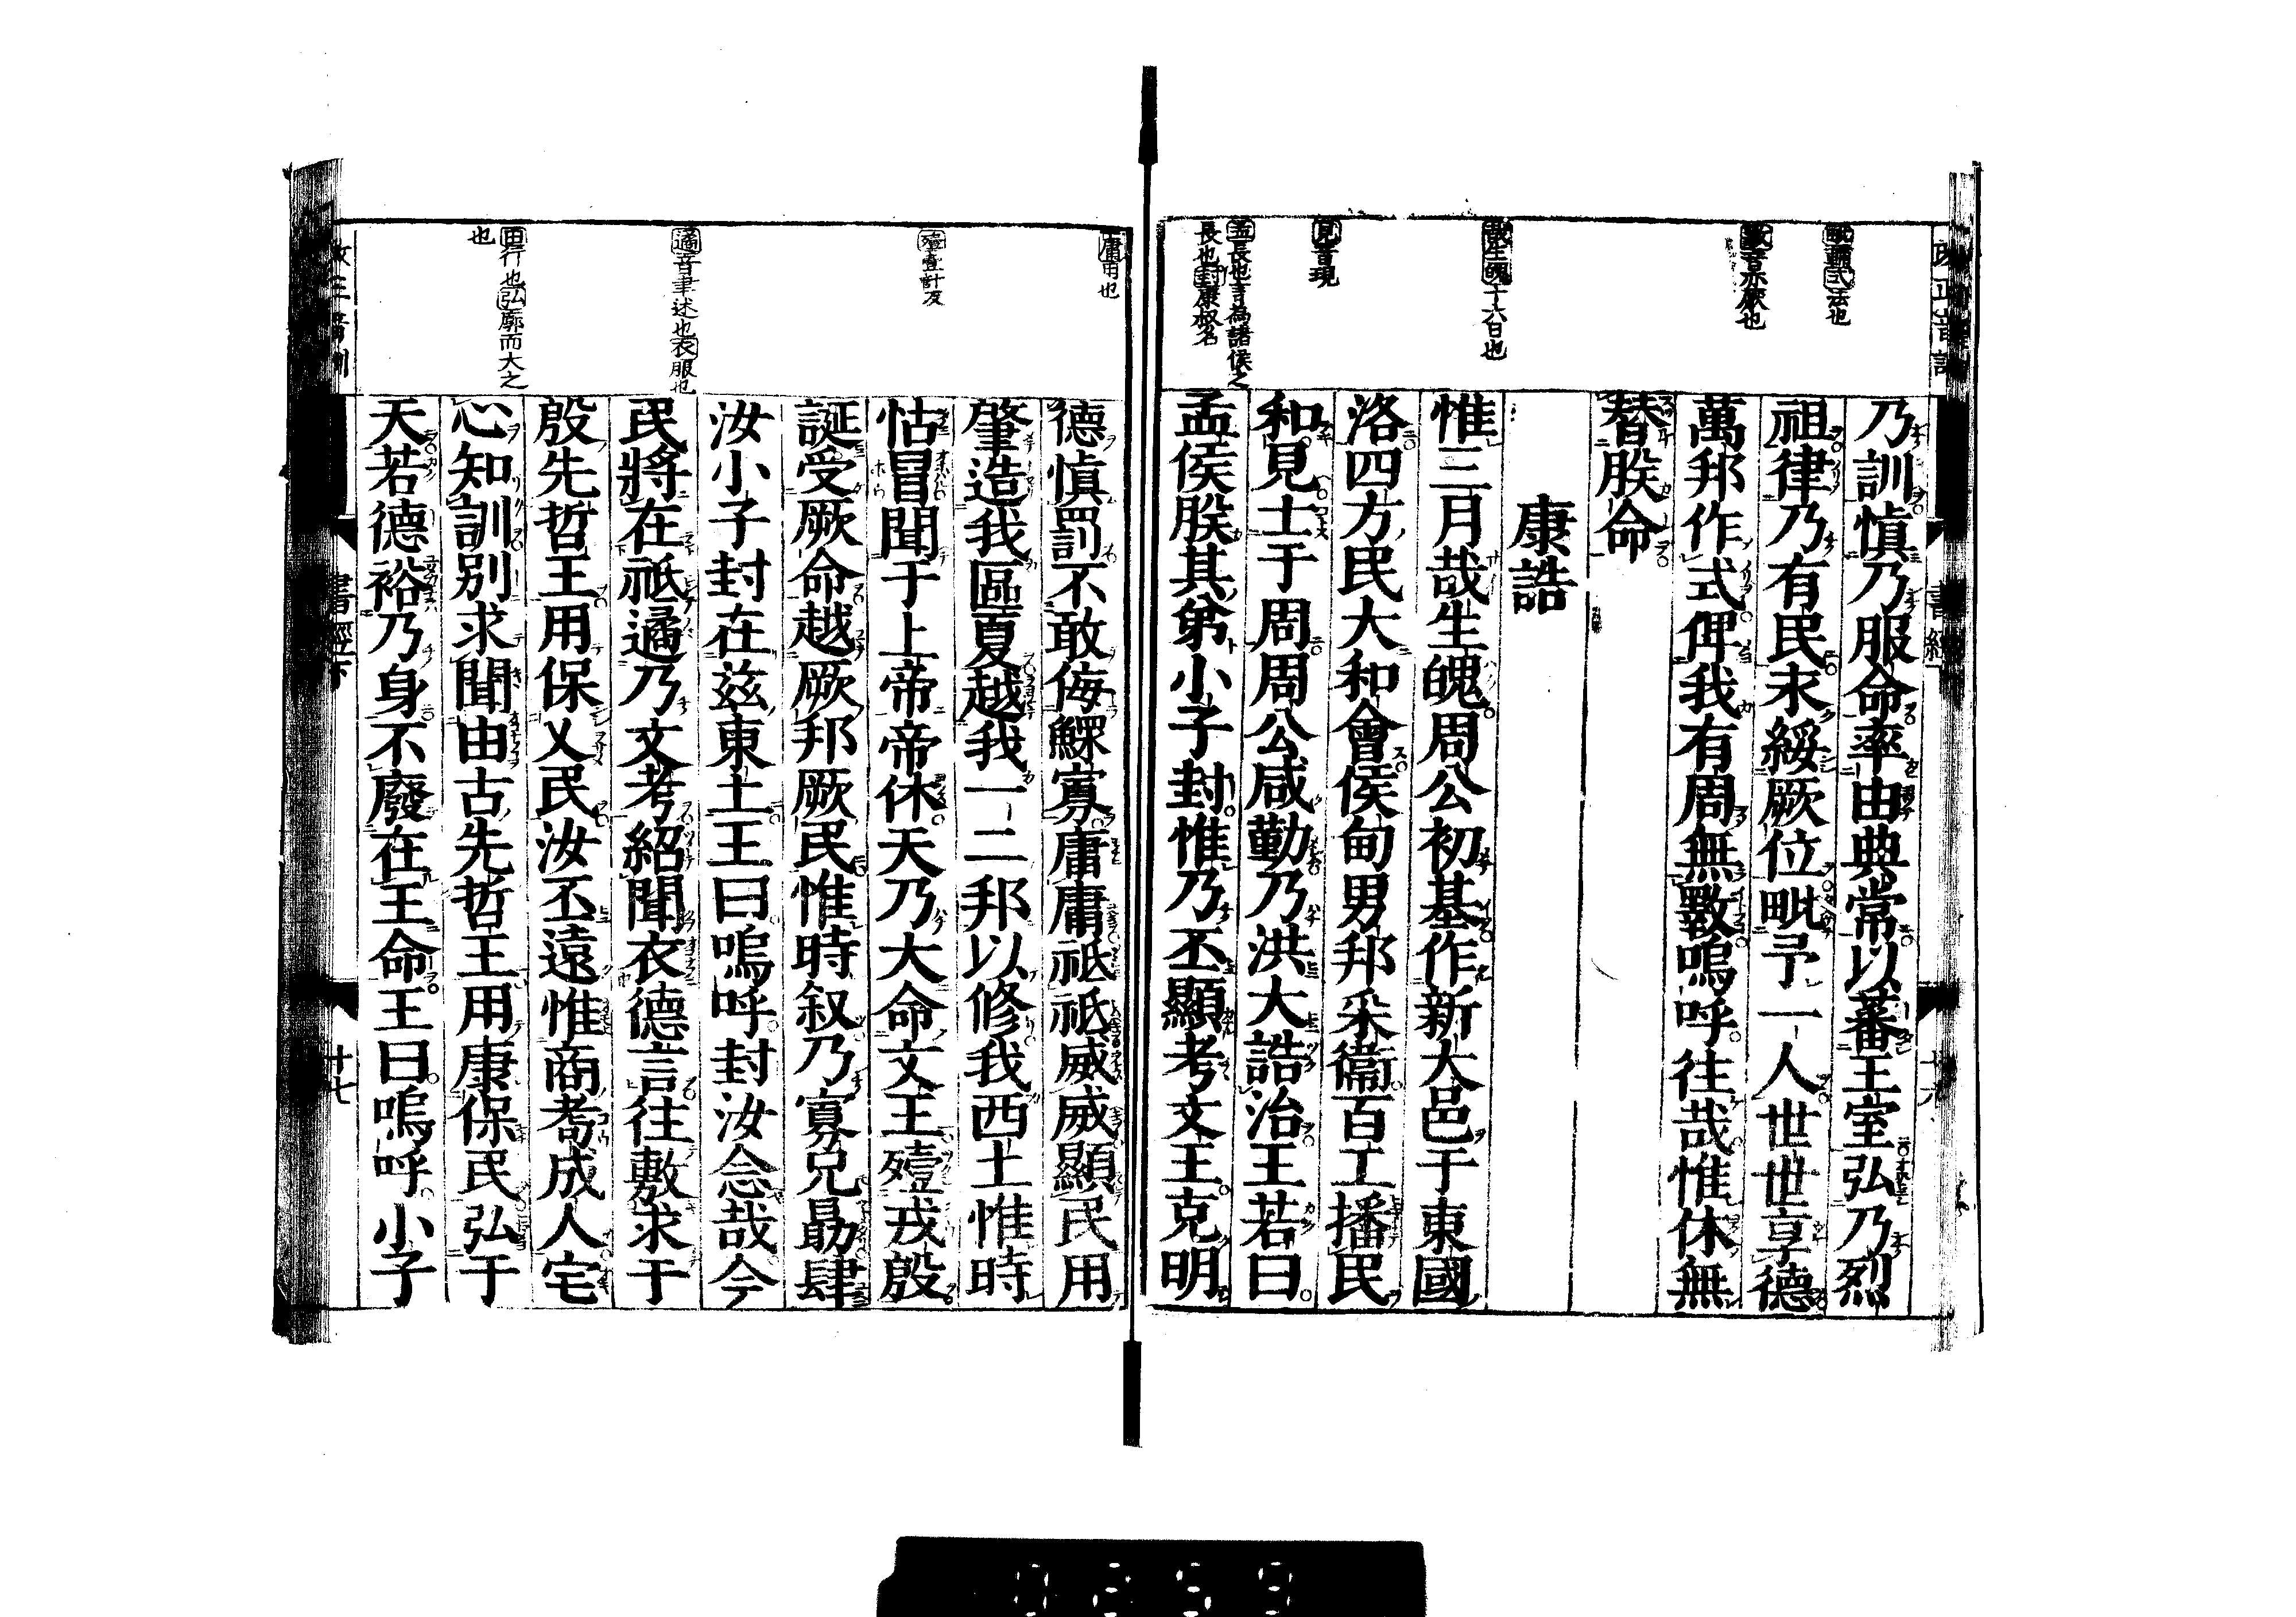 乃訓慎乃服命率由典常以蕃王室弘乃烈
祖律乃有民永綏厥位毗予一人世世享德
萬邦作式俾我有周無斁嗚呼往哉惟休無
替朕命
康誥
惟三月哉生魄周公初基作新大邑于東國
洛四方民大和會侯甸男邦采衞百工播民
和見士于周周公咸勤乃洪大誥治王若曰
孟侯朕其弟小子封惟乃丕顯考文王克明
哉生魄十六日也
見音現
孟長也言為諸侯之
長也封康叔名
德慎罰不敢侮鰥寡庸庸祗祗威威顯民用
肇造我區夏越我一二邦以修我西土惟時
怙冒聞于上帝帝休天乃大命文王殪戎殷
誕受厥命越厥邦厥民惟時叙乃寡兄勗肆
汝小子封在茲東土王曰嗚呼封汝念哉今
民將在祗遹乃文考紹聞衣德言往敷求于
殷先哲王用保乂民汝丕遠惟商耇成人宅
心知訓別求聞由古先哲王用康保民弘于
天若德裕乃身不廢在王命王曰嗚呼小子
庸用也
殪壹計反
遹音聿述也衣服也
由行也弘廓而大之
也
書經下
十七